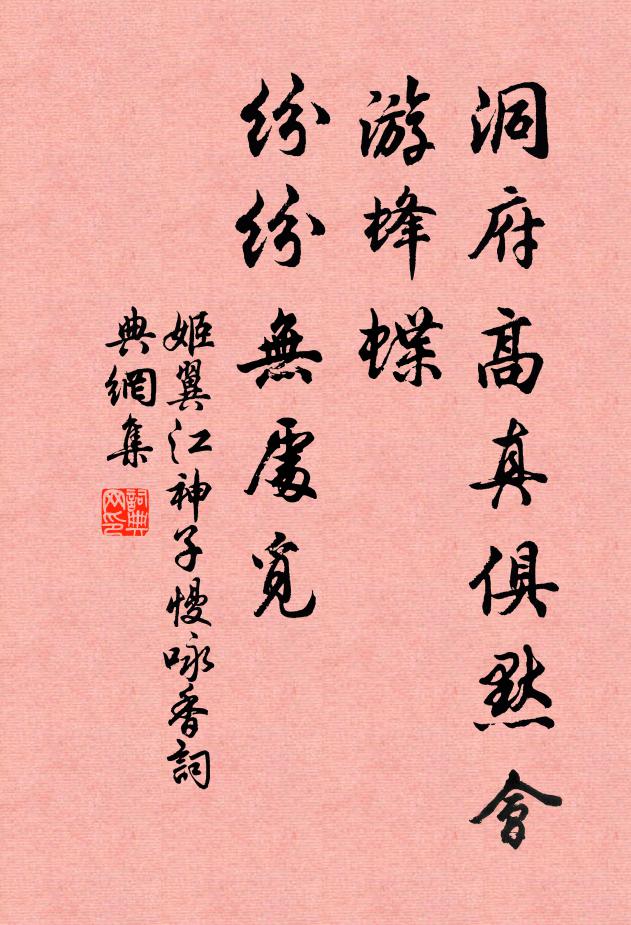 洞府高真俱默會
游蜂蝶
紛紛無處覓
姬翼江神子慢咏香詞
典網集
詞典网印